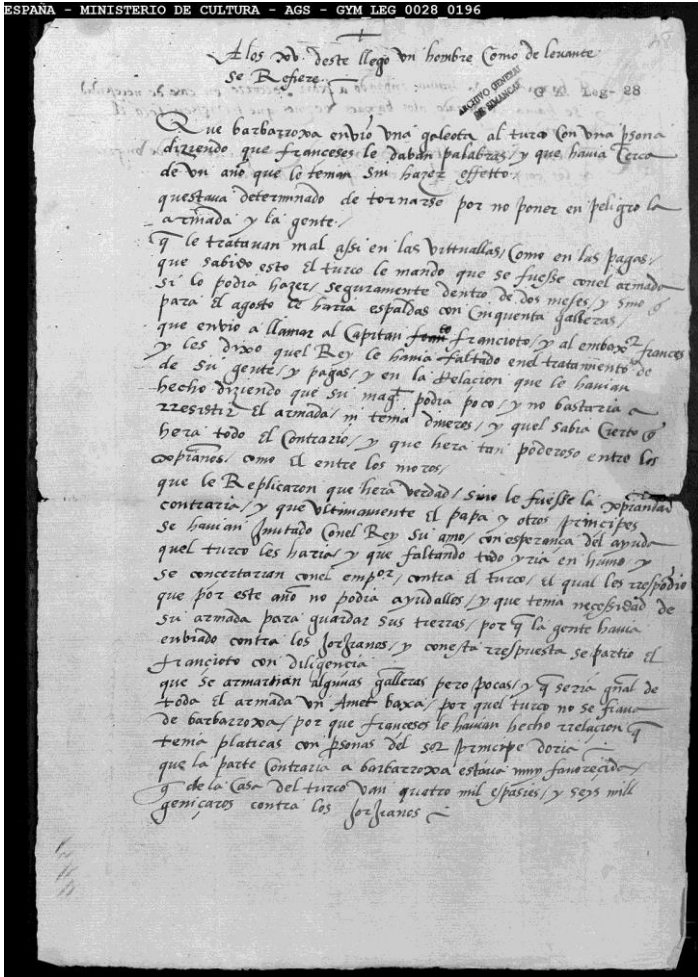 ESPAÑA - MINISTERIO DE CULTURA - AGS - GYM LEG 0028 0196
A los xv. deste llego un hombre Como de levante
Se Refiere
ARCHIVO GENERAL
DE SIMANCAS
G. M. Leg- 28
Que barbarroxa envio una galeota al turco Con una psona
diziendo que franceses le davan palabras / y que havia Cerca
de un año que lo tenian sin hazer effetto /
questava determinado de tornarse por no poner en peligro la
armada y la gente /
q le tratavan mal assi en las vittuallas / Como en las pagas /
que sabido esto El turco le mando que se fuesse conel armada
si lo podia hazer / seguramente dentro de dos meses / y sino q
para El agosto le haria espaldas con Cinquenta galeras /
que envio a llamar al Capitan francioto / y al embaxor frances
y les dixo quel Rey le havia faltado enel tratamiento de
de su gente / y pagas / y en la Relacion que le havian
hecho diziendo que su magt podia poco / y no bastaria a
rresistir El armada / ni tenia dineros / y quel sabia Cierto q
hera todo El Contrario / y que hera tan poderoso entre los
xpianos / como El entre los moros /
que le Replicaron que hera verdad / sino le fuesse la xpiandad
contraria / y que ultimamente El papa y otros principes
se havian Juntado Conel Rey su amo / con esperança del ayuda
quel turco les haria / y que faltando todo yria en humo / y
se concertarian conel empor / contra El turco / el qual les rrespodio
que por este año no podia ayudalles / y que tenia necessidad de
su armada para guardar sus tierras / por q la gente havia
enbiado contra los Jorjianos / y conesta rrespuesta se partio El
francioto con diligencia
que se armarian algunas galleras pero pocas / y q seria gnal de
toda El armada un Amet baxa / por quel turco no se fiava
de barbarroxa / por que franceses le havian hecho rrelacion q
tenia platicas con psonas del sor principe doria
que la parte Contraria a barbarroxa estava muy favorecida /
q de la Casa del turco van quatro mil espaies / y seys mill
geniçaros contra los Jorjianos